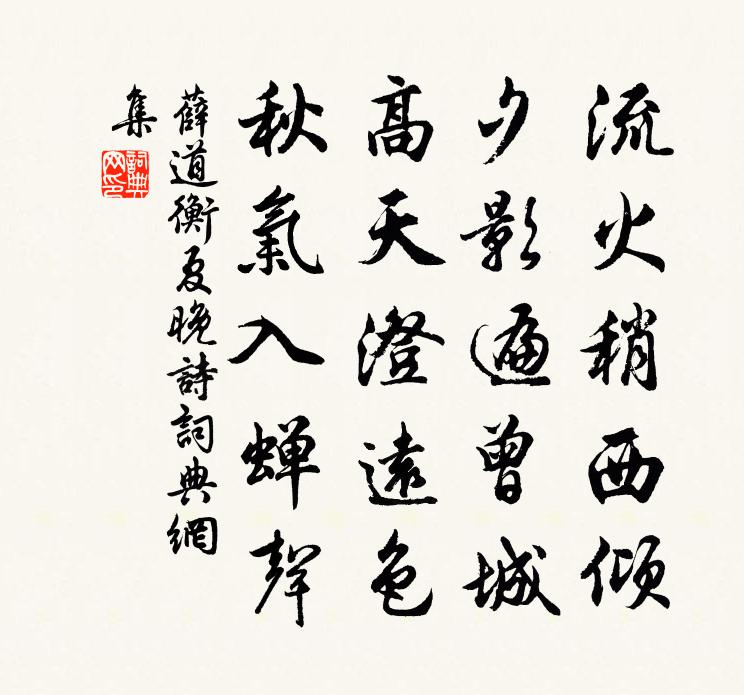 流火稍西倾
夕影遍曾城
高天澄遠色
秋氣入蝉聲
薛道衡夏晚詩詞典網
集
詞典
网印